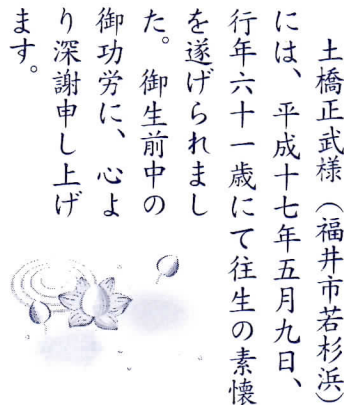 土橋正武様（福井市若杉浜）
には、平成十七年五月九日、
行年六十一歳にて往生の素懐
を遂げられまし
た。御生前中の
御功労に、心よ
り深謝申し上げ
ます。